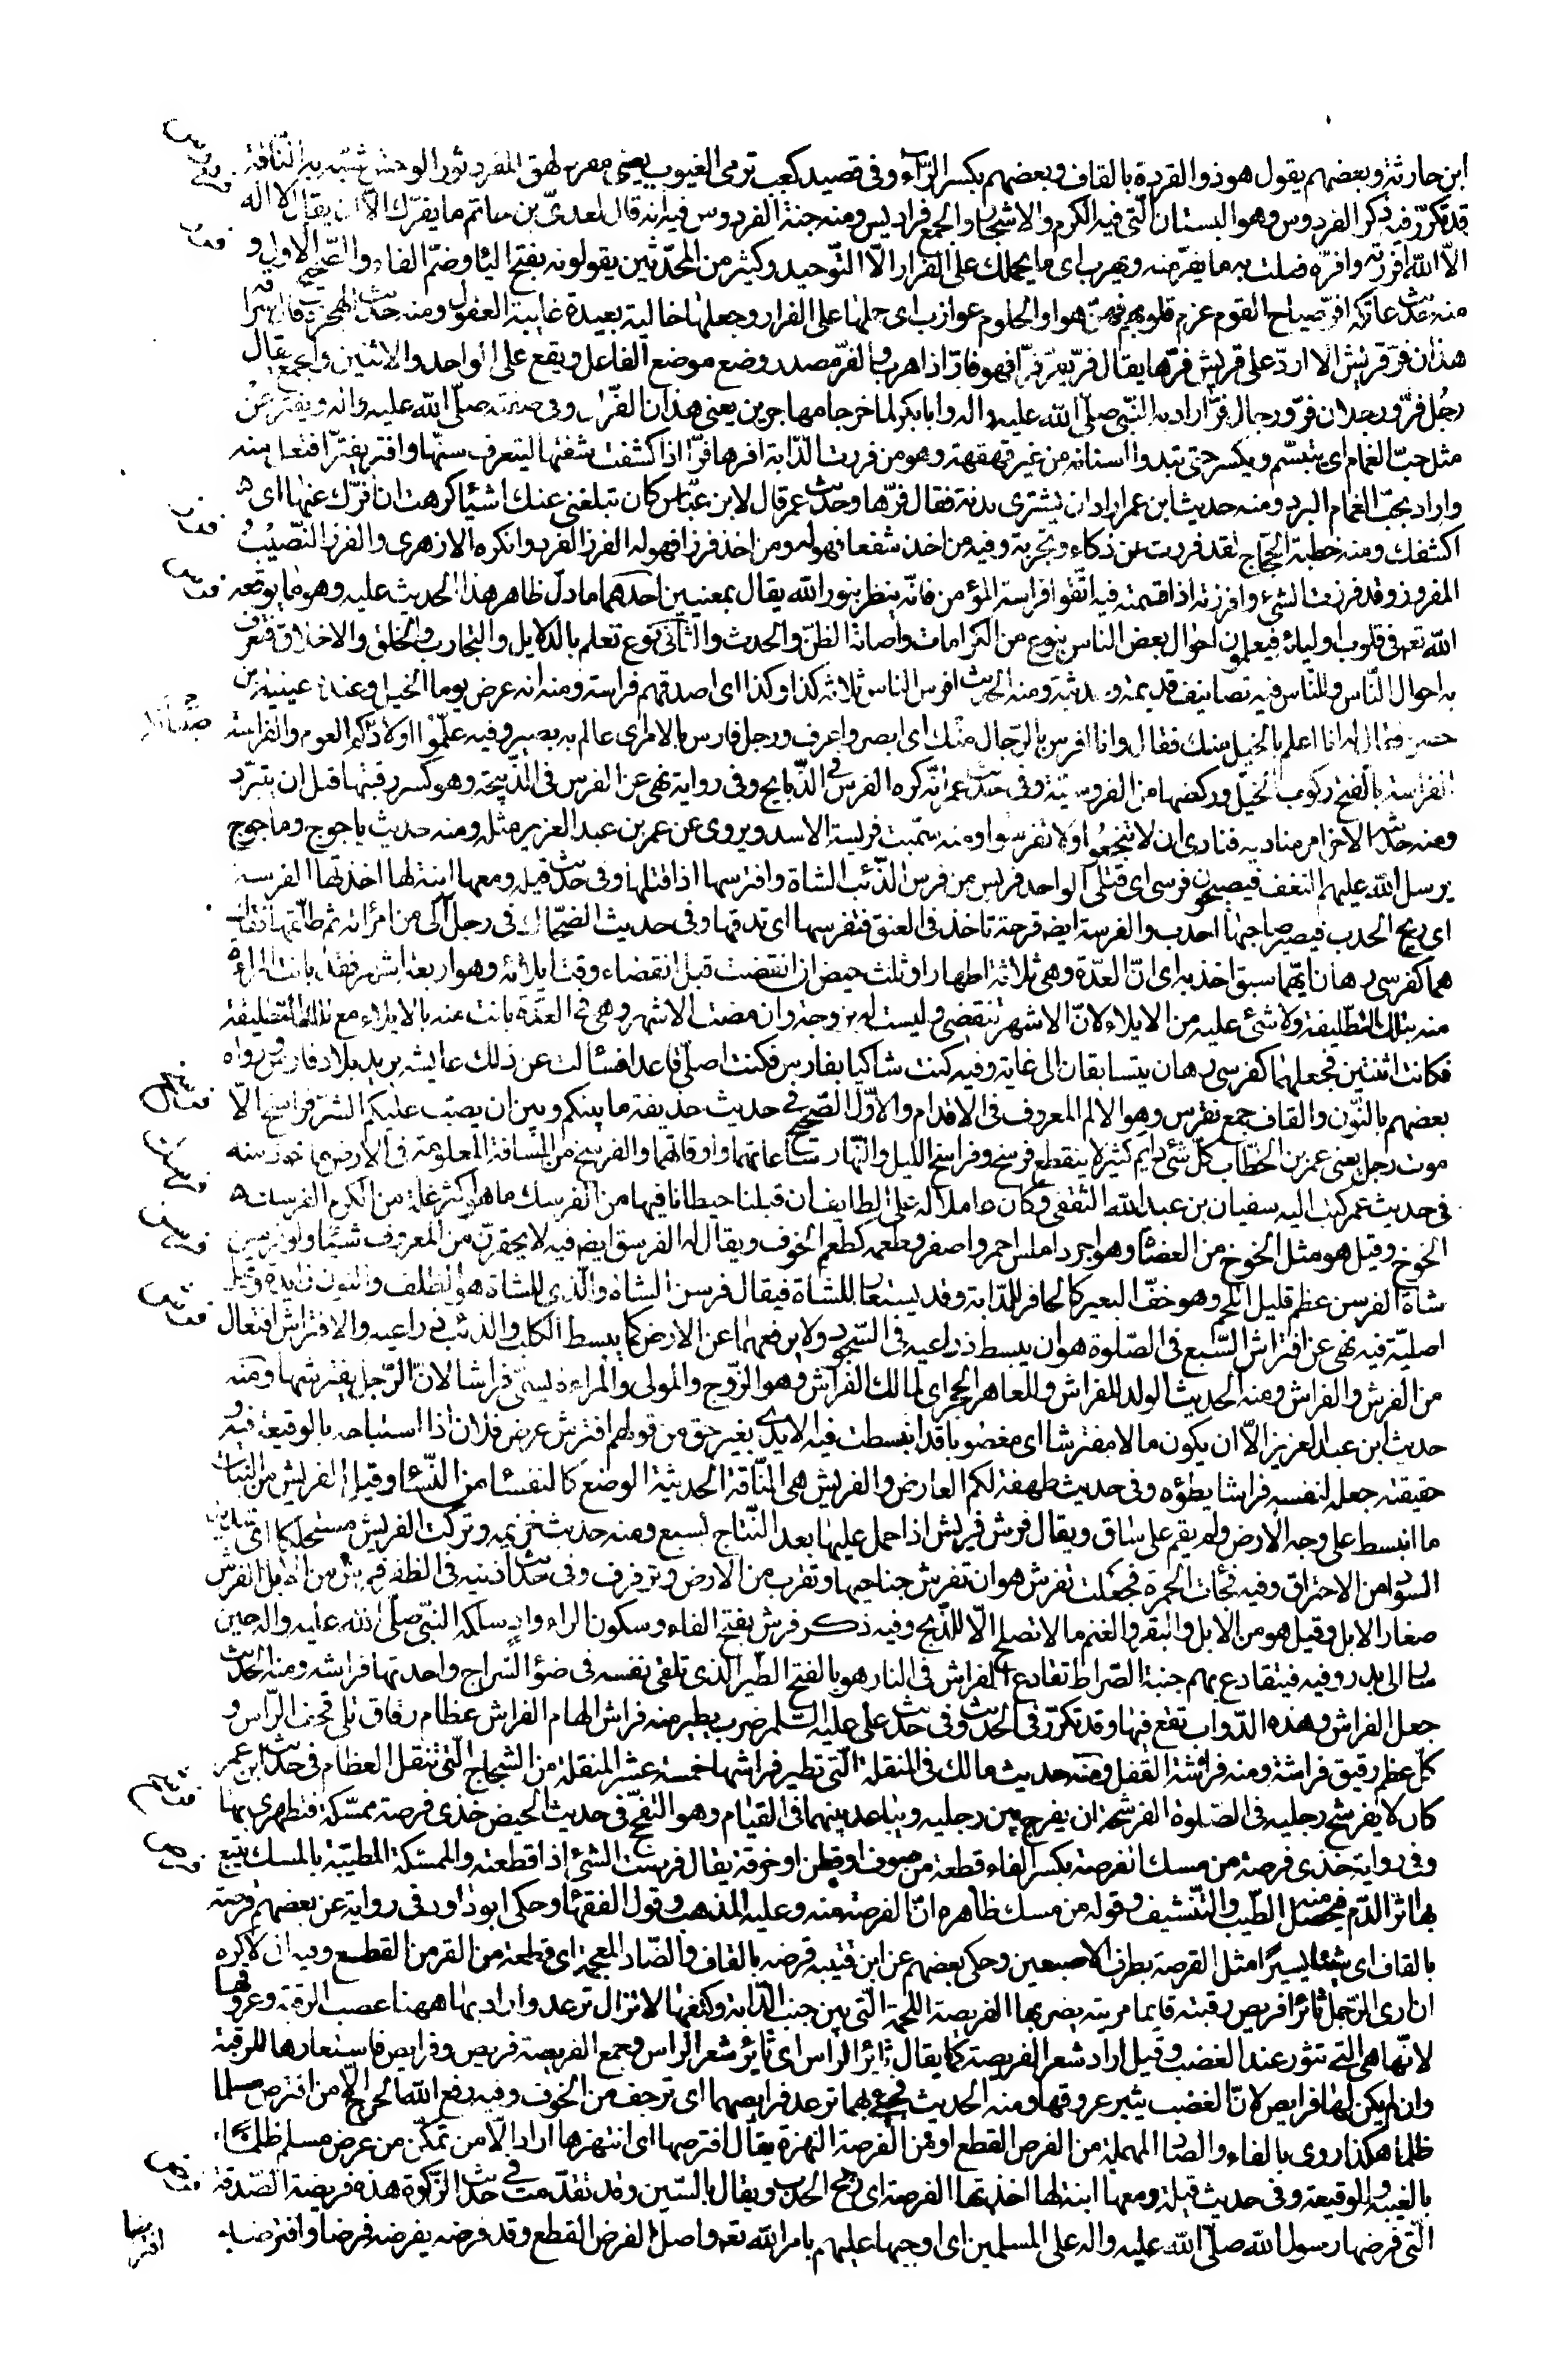 ابن حارثة وبعضهم يقول هو ذو القردة بالقاف وبعضهم بكسر الراء وفى قصيد كعب ترمى الغيوب بعينى مفرد لهق المفرد ثور الوحش شبّه به النّاقة
قد تكرّر فيه ذكر الفردوس وهو البستان الّتى فيه الكرم والاشجار والجمع فراديس ومنه جنة الفردوس فيه انه قال لعدىّ بن حاتم ما يفرّك الّا ان يقال لا اله
الّا الله افررته وافرّه فعلت به ما يفرّ منه ويهرب اى ما يحملك على الفرار الّا التّوحيد وكثير من المحدّثين يقولونه بفتح الياء وضمّ الفاء والصّحيح الاول و
منه حديث عاتكة افرّ صياح القوم عزم قلوبهم فهنّ هواء والحلوم عوازب اى حملها على الفرار وجعلها خالية بعيدة غايبة العقول ومنه حديث الهجرة قال سراقة
هذان فرّ قريش الا اردّ على قريش فرّها يقال فرّ يفرّ فرّا فهو فارّ اذا هرب والفرّ مصدر وضع موضع الفاعل ويقع على الواحد والاثنين والجمع يقال
رجُل فرّ ورجلان فرّ ورجال فرّ اراد به النّبىّ صلّى الله عليه واله وابا بكر لما خرجا مهاجرين يعنى هذان الفرّان وفى صفته صلّى الله عليه واله ويفترّ عن
مثل حبّ الغمام اى يتبسّم ويكسر حتى تبدوا اسنانه من غير قهقهة وهو من فررت الدّابة افرها فرّا اذا كشفت شفتها ليتعرف سنّها وافتر يفترّ افتعل منه
واراد بحبّ الغمام البرد ومنه حديث ابن عمر اراد ان يشترى بدنة فقال فرّها وحديث عمر قال لابن عبّاس كان تبلغنى عنك اشياء كرهت ان افرّك عنها اى
اكشفك ومنه خطبة الحجّاج لقد فررت عن ذكاء وتجربة وفيه من اخذ شفعا فهو له ومن اخذ فرزا فهو له الفرز الفرد وانكره الازهرى والفرز النّصيب
المفروز وقد فرزت الشئ وافرزته اذا قسمته فيه اتّقوا فراسة المؤمن فانّه ينظر بنور الله يقال بمعنيين احدهما ما دلّ ظاهر هذا الحديث عليه وهو ما يوقعه
الله تعه فى قلوب اوليائه فيعلمون احوال بعض الناس بنوع من الكرامات واصابة الظنّ والحدث والثانى نوع تعلم بالدلايل والتجارب والخلق والاخلاق فتعرف
به احوال النّاس وللنّاس فيه تصانيف قديمة وحديثة ومنه الحديث افرس الناس ثلاثة كذا وكذا اى اصدقهم فراسة ومنه انه عرض يوما الخيل وعنده عيينة بن
حصن فقال له انا اعلم بالخيل منك فقال وانا افرس بالرّجال منك اى ابصر واعرف ورجل فارس بالامر اى عالم به بصير وفيه علّموا اولادكم العوم والفراسة
الفراسة بالفتح ركوب الخيل وركضها من الفروسيّة وفى حديث عمر انّه كره الفرس فى الذّبايح وفى رواية نهى عن الفرس فى الذّبيحة وهو كسر رقبتها قبل ان تبرد
ومنه حديثه الاخر امر مناديه فنادى ان لا تنخعوا ولا تفرسوا ومنه سمّيت فريسة الاسد ويروى عن عمر بن عبد العزيز مثله ومنه حديث ياجوج وماجوج
يرسل الله عليهم النغف فيصبحون فرسى اى قتلى الواحد فريس من فرس الذّئب الشاة وافترسها اذا قتلها وفى حديث قيلة ومعها ابنة لها اخذتها الفرسة
اى ريح الحدب فيصير صاحبها احدب والفرسة ايضه قرحة تاخذ فى العنق فتفرسها اى تدقها وفى حديث الضحّاك فى رجل آلى من امرأته ثم طلّقها فقال
هما كفرسى رهان ايّهما سبق اخذ به اى انّ العدّة وهى ثلاثة اطهار او ثلث حيض ان انقضت قبل انقضاء وقت ايلائه وهو اربعة اشهر فقد بانت المراة
منه بتلك التطليقة ولا شئ عليه من الايلاء لانّ الاشهر تنقضى وليست له بزوجة وان مضت الاشهر وهى فى العدّة بانت عنه بالايلاء مع تلك التّطليقة
فكانت اثنتين فجعلهما كفرسى رهان يتسابقان الى غاية وفيه كنت شاكيا بفارس فكنت اصلّى قاعدا فسألت عن ذلك عايشه يريد بلاد فارس ورواه
بعضهم بالنّون والقاف جمع نقرس وهو الالم المعروف فى الاقدام والاوّل الصّحيح فى حديث حذيفة ما بينكم وبين ان يصبّ عليكم الشرّ فراسخ الّا
موت رجل يعنى عمر بن الخطّاب كلّ شئ دايم كثير لا ينقطع فرسخ وفراسخ الليل والنّهار ساعاتهما واوقاتهما والفرسخ من المسافة المعلومة فى الارض ماخوذ منه
فى حديث عمر كتب اليه سفيان بن عبد الله الثقفى وكان عاملا له على الطايف ان قبلنا حيطانا فيها من الفرسك ما هو اكثر غلة من الكرم الفرسك
الخوخ وقيل هو مثل الخوخ من العضاه وهو اجرد املس احمر واصفر وطعمه كطعم الخوخ ويقال له الفرسق ايضه فيه لا يحقرنّ من المعروف شيئا ولو فرسن
شاة الفرسن عظم قليل اللّحم وهو خفّ البعير كالحافر للدّابة وقد يستعار للشاة فيقال فرسن الشاة والّذى للشاة هو الظلف والنون زايدة وقيل
اصليّة فيه نهى عن افتراش السّبع فى الصّلوة هو ان يبسط ذراعيه فى السّجود ولا يرفعهما عن الارض كما يبسط الكلب والذئب ذراعيه والافتراش افتعال
من الفرش والفراش ومنه الحديث الولد للفراش وللعاهر الحجر اى لمالك الفراش وهو الزّوج والمولى والمراة تسمّى فراشا لانّ الرّجل يفترشها ومنه
حديث ابن عبد العزيز الّا ان يكون مالا مفترشا اى مغصوبا قد انبسطت فيه الايدى بغير حق من قولهم افترش عرض فلان اذا استباحه بالوقيعة فيه و
حقيقته جعله لنفسه فراشا يطؤه وفى حديث طهفة لكم العارض والفريش هى النّاقة الحديثة الوضع كالنفساء من النّساء وقيل الفريش من النّبات
ما انبسط على وجه الارض ولم يقم على ساق ويقال فرس فريش اذا حمل عليها بعد النّتاج بسبع ومنه حديث خزيمه وتركت الفريش مستحلكا اى شديد
السواد من الاحتراق وفيه فجاءت الحمرة فجعلت تفرش هو ان تفرش جناحيها وتقرب من الارض وترفرف وفى حديث اذينه فى الظفر فرش من الابل الفرش
صغار الابل وقيل هو من الابل والبقر والغنم ما لا تصلح الّا للذّبح وفيه ذكر فرش بفتح الفاء وسكون الراء وادٍ سلكه النّبىّ صلّى الله عليه واله حين
سار الى بدر وفيه فيتقادع بهم جنبة الصّراط تقادع الفراش فى النار هو بالفتح الطّير الذى تلقى نفسه فى ضوء السّراج واحدتها فراشه ومنه الحديث
جعل الفراش وهذه الدّواب تقع فيها وقد تكرّر فى الحديث وفى حديث على عليه السّلم ضرب يطير منه فراش الهام الفراش عظام رقاق تلى قحف الرّاس و
كلّ عظم رقيق فراشة ومنه فراشة القفل ومنه حديث مالك فى المنقلة الّتى تطير فراشها خمسة عشر المنقلة من الشجاج الّتى تنقل العظام فى حديث ابن عمر
كان لا يفرشح رجليه فى الصّلوة الفرشحة ان يفرج بين رجليه ويباعد بينهما فى القيام وهو التفحّج فى حديث الحيض خذى فرصة ممسّكة فتطهرى بها
وفى رواية خذى فرصة من مسك الفرصة بكسر الفاء قطعة من صوف او قطن او خرقة يقال فرصت الشئ اذا قطعته والممسّكة المطيّبة بالمسك يتبع
بها اثر الدّم فيحصل منه الطّيب والتّنشيف وقوله من مسك ظاهره انّ الفرصة منه وعليه المذهب وقول الفقهاء وحكى ابو داود فى رواية عن بعضهم قرصة
بالقاف اى شيئا يسيرًا مثل القرصة بطرف الاصبعين وحكى بعضهم عن ابن قتيبه قرضه بالقاف والضّاد المعجمة اى قطعة من القرض القطع وفيه انى لاكره
ان ارى الرّجل ثائرا فريص رقبته قايما على مريته يضربها الفريصة اللّحمة الّتى بين جنب الدّابة وكتفها لا تزال ترعد واراد بها ههنا عصب الرقبة وعروقها
لانّها هى الّتى تثور عند الغضب وقيل اراد شعر الفريصة كما يقال ثائر الراس اى ثاير شعر الراس وجمع الفريصة فريص وفرايص فاستعارها للرقبة
وان لم يكن لها فرايص لانّ الغضب يثير عروقها ومنه الحديث فجئ بهما ترعد فرايصهما اى ترجف من الخوف وفيه رفع الله الحرج الّا من افترص مسلما
ظلما هكذا روى بالفاء والصّاد المهملة من الفرص القطع او من الفرصة النهزة يقال افترصها اى انتهزها اراد الّا من تمكّن من عرض مسلم ظلمًا
بالغيبة والوقيعة وفى حديث قيلة ومعها ابنة لها اخذتها الفرصة اى ريح الحدب ويقال بالسّين وقد تقدّمت فى حديث الزّكوة هذه فريضة الصّدقة
الّتى فرضها رسول الله صلّى الله عليه واله على المسلمين اى اوجبها عليهم بامر الله تعه واصل الفرض القطع وقد فرضه يفرضه فرضا وافترضه